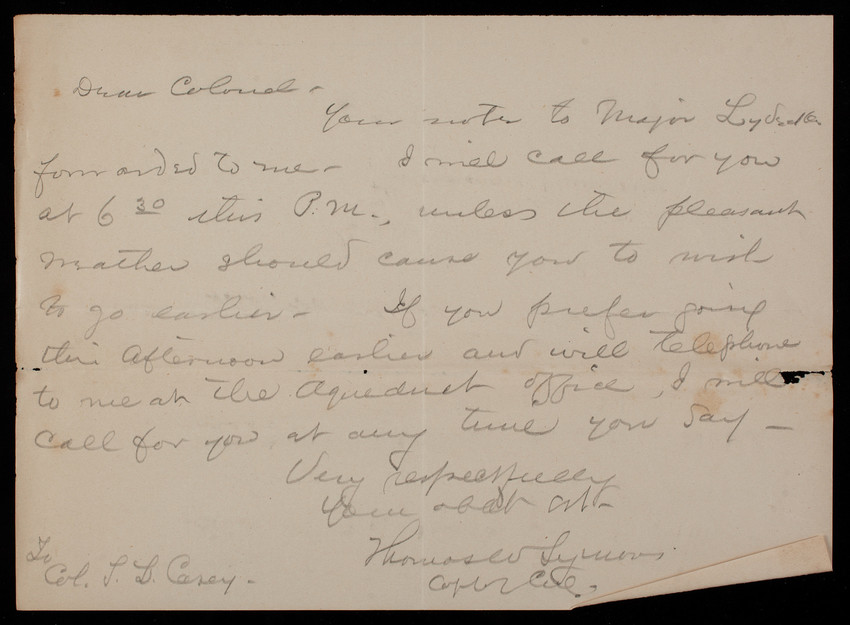 Dear Colonel -
Your note to Major Lydecker
forwarded to me - I will call for you
at 6 30 this P.M., unless the pleasant
weather should cause you to wish
to go earlier - If you prefer going
this afternoon earlier and will telephone
to me at the Aqueduct office, I will
call for you at any time you say -
Very respectfully
Your obdt svt -
Thomas W Symons
Capt of Eng. -
To
Col. T. L. Casey -